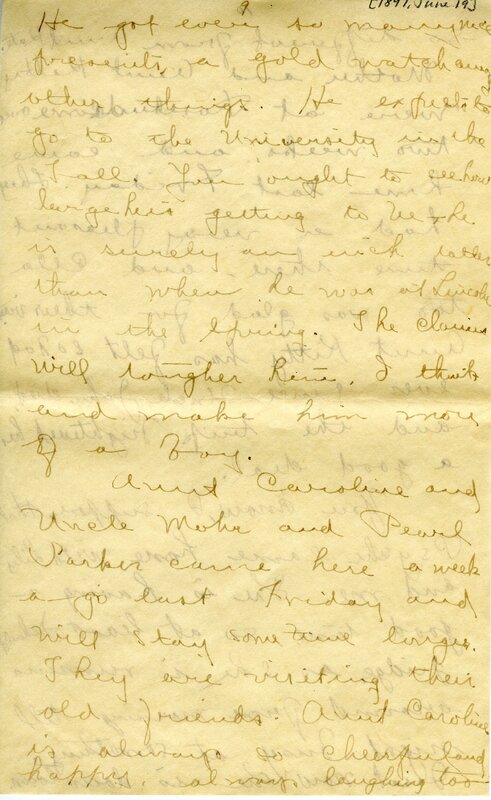 9
[1897, June 19]
He got ever so many nice
presents, a gold watch among
other things. He expects to
go to the University in the
Fall. You ought to see how
large he's getting to be - he
is surely an inch taller
than when he was at Lincoln
in the Spring. The
will toughen him, I think
and make him more
of a boy.
Aunt Caroline and
Uncle and Pearl
Parker came here a week
a go last Friday and
will stay some time longer.
They are visiting their
old friends. Aunt Caroline
is always so cheerful and
happy, always laughing too